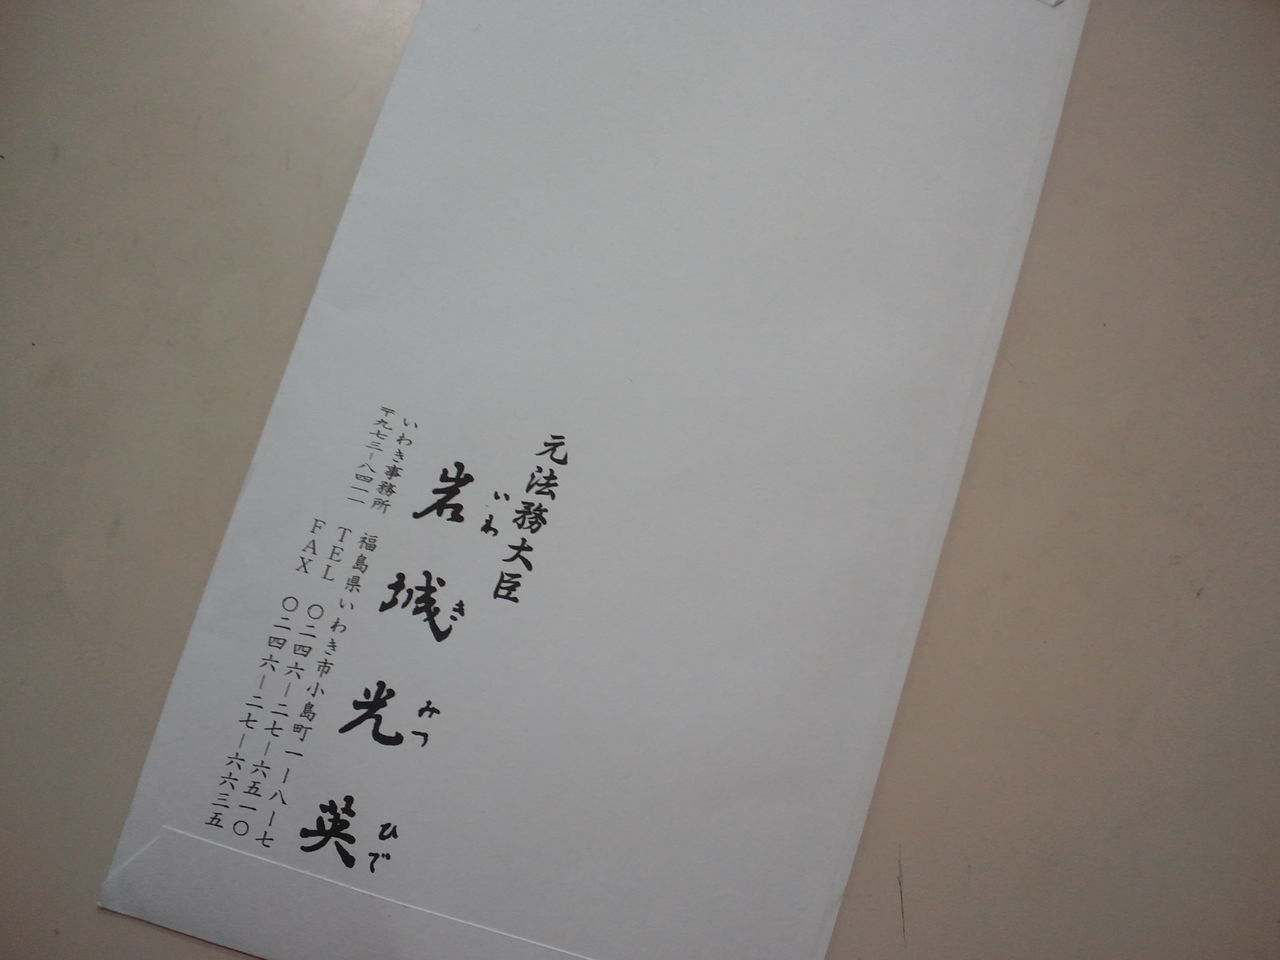 元法務大臣
いわ き みつ ひで
岩城光英
いわき事務所
〒九七三-八四一一
福島県いわき市小島町一-八-七
TEL 〇二四六-二七-六五一〇
FAX 〇二四六-二七-六六三五